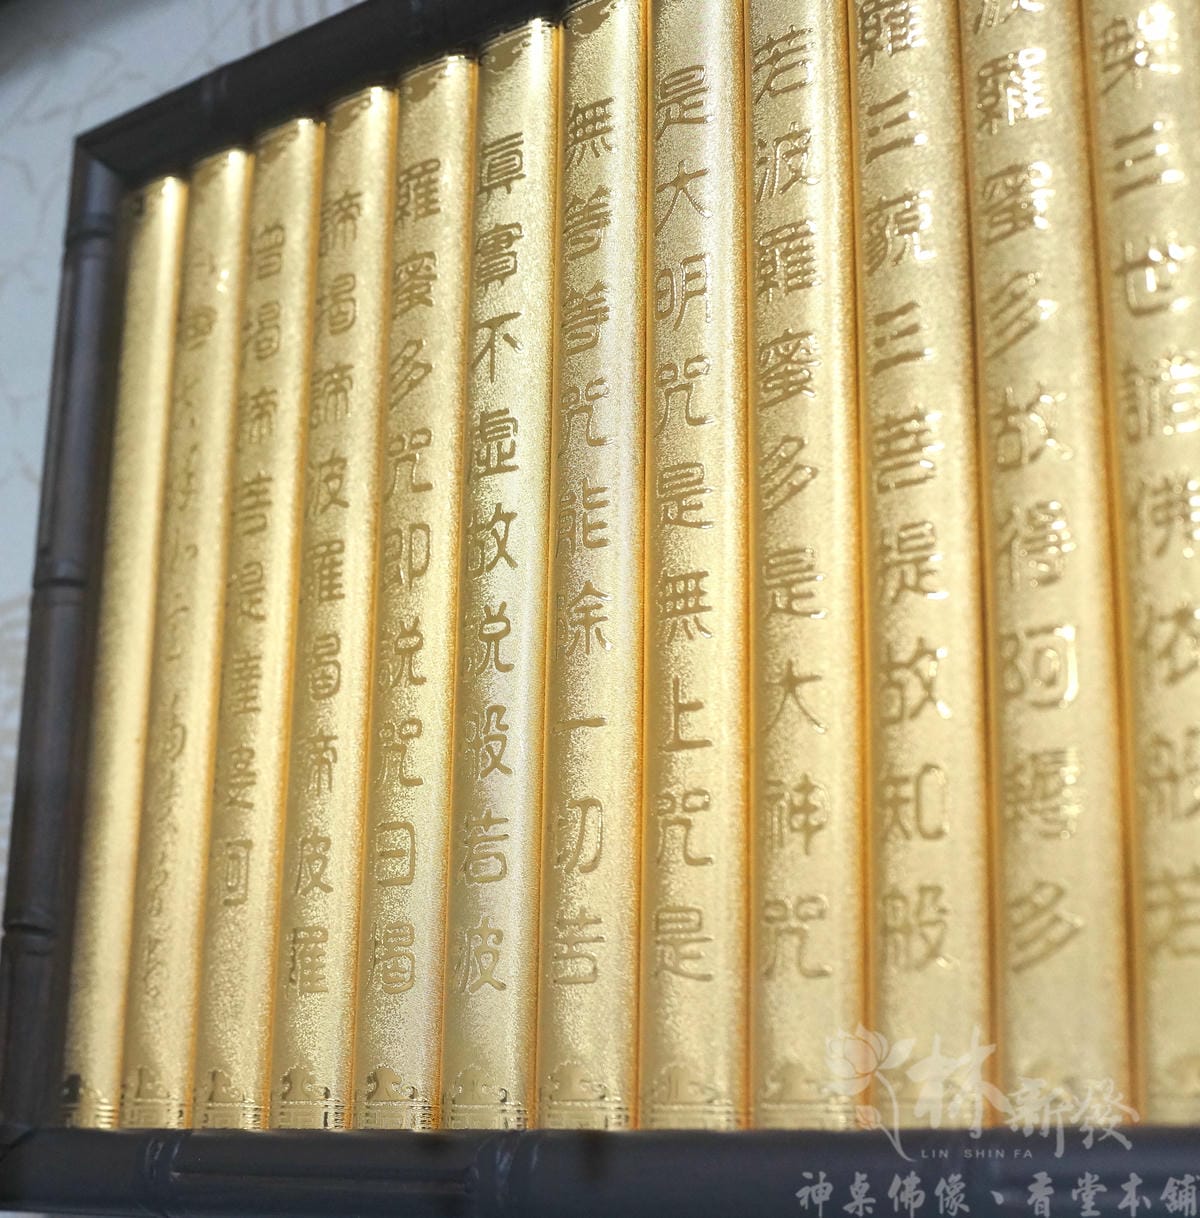 槃三世諸佛依般若
波羅蜜多故得阿耨多
羅三藐三菩提故知般
若波羅蜜多是大神咒
是大明咒是無上咒是
無等等咒能除一切苦
眞實不虛故說般若波
羅蜜多咒即說咒曰揭
諦揭諦波羅揭諦波羅
僧揭諦菩提薩婆訶
林新發
LIN SHIN FA
神桌佛像、香堂本舖